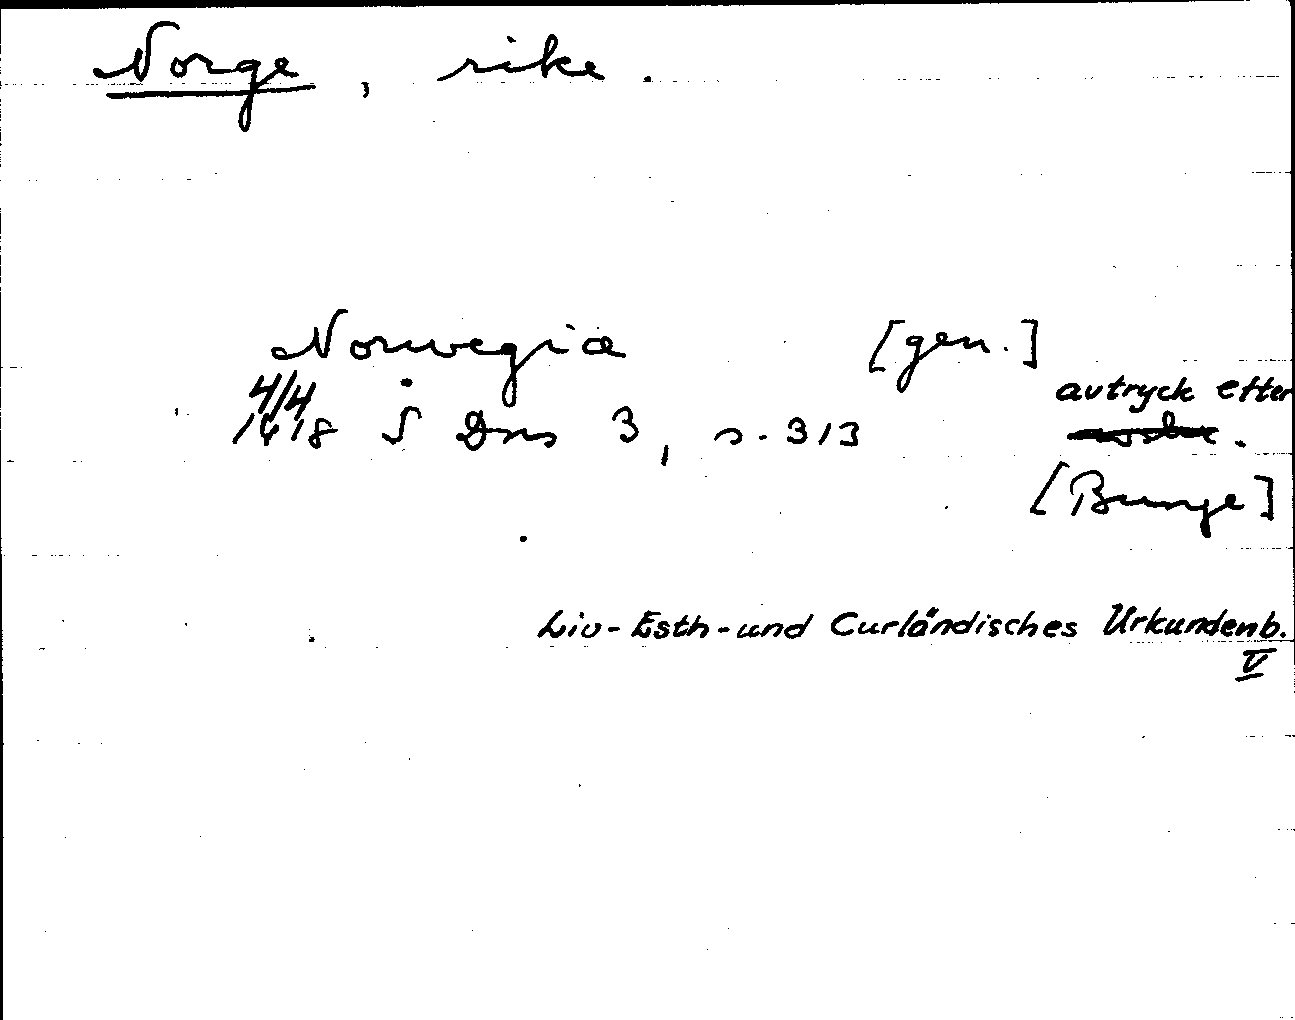 Norge, rike.
Norwegiæ [gen.]
4/4 avtryck efter
1418 S Dns 3, s. 313
[Bunge]
Liv-Esth-und Curländisches Urkundenb.
V